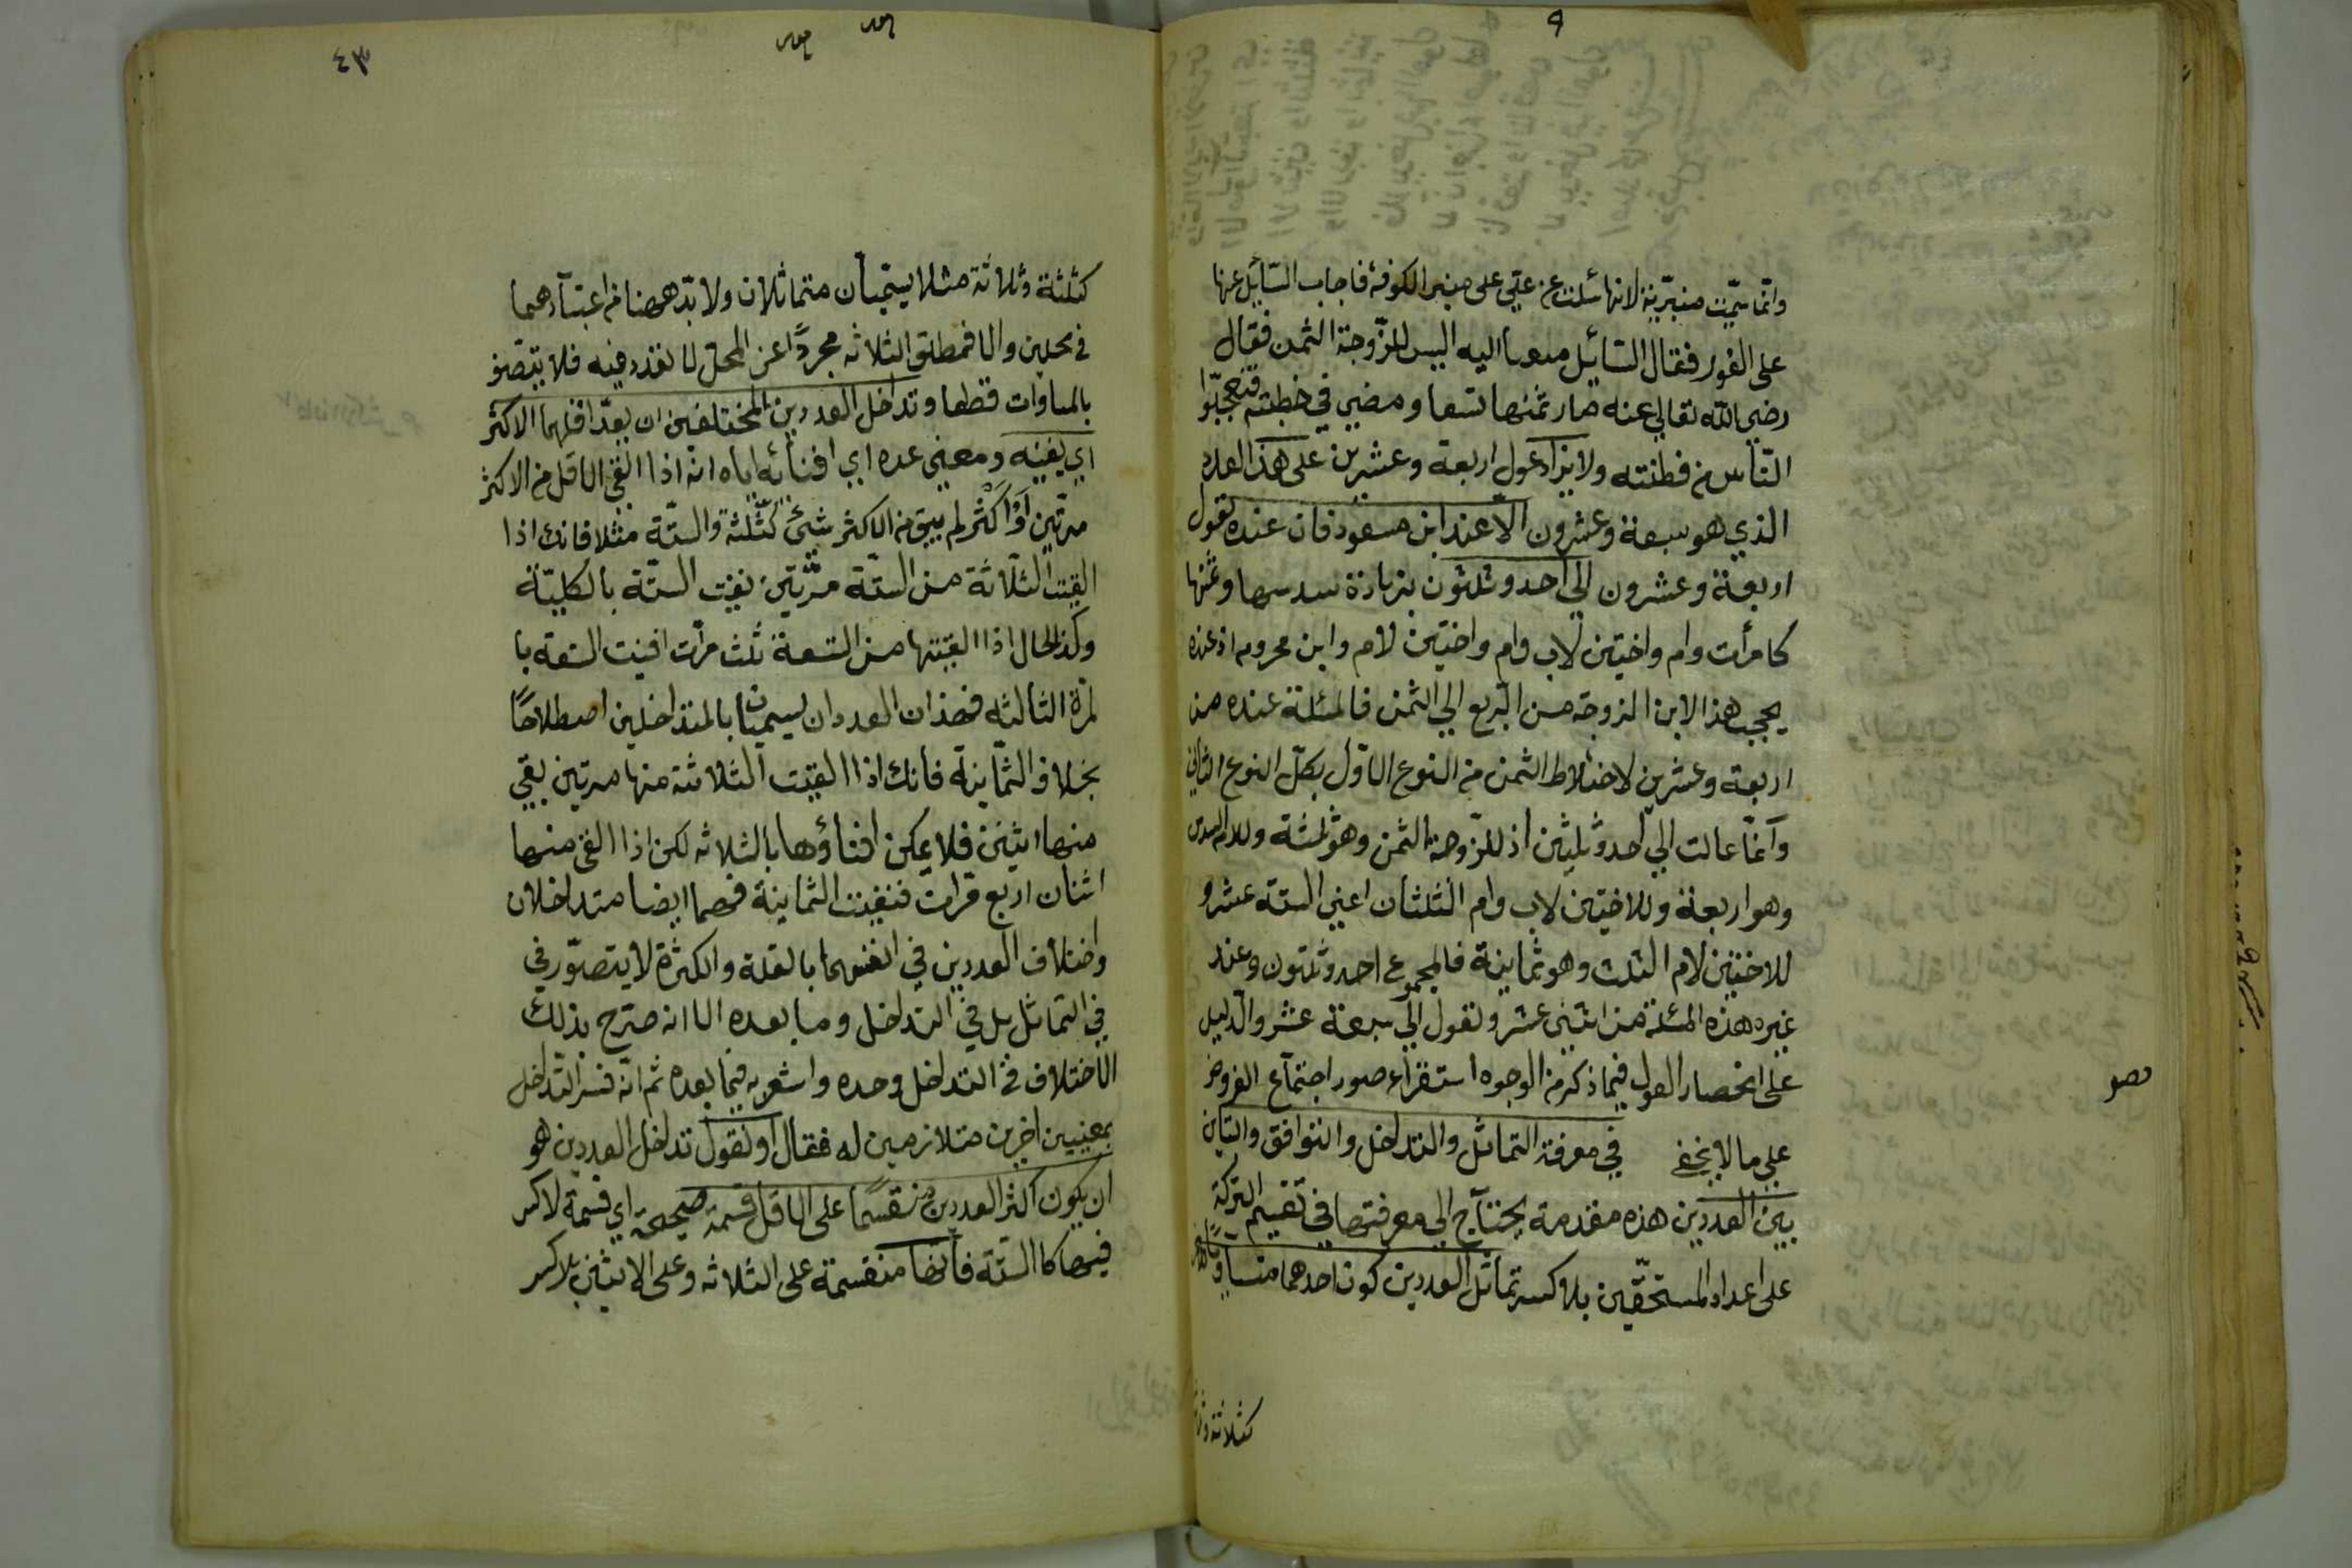 وانما سميت منبرية لانها سئلت عن علي على منبر الكوفة فاجاب السائل عنها
على الفور فقال السائل متعنتا اليه اليس للزوجة الثمن فقال
رضي الله تعالى عنه صار ثمنها تسعا ومضى في خطبته فتعجبوا
الناس من فطنته ولا يزاد عول اربعة وعشرين على هذا العدد
الذي هو سبعة وعشرون الا عند ابن مسعود فان عنده تعول
اربعة وعشرون الى احد وثلثون بزيادة سدسها وثمنها
كامرأت وام واختين لاب وام واختين لام وابن محروم اذ عنده
يحجب هذا الابن الزوجة من الربع الى الثمن فالمسئلة عنده من
اربعة وعشرين لاختلاط الثمن من النوع الاول بكل النوع الثاني
وانما عالت الى احد وثلثين اذ للزوجة الثمن وهو ثلثة وللام السدس
وهو اربعة وللاختين لاب وام الثلثان اعني الستة عشر و
للاختين لام الثلث وهو ثمانية فالمجموع احد وثلثون وعند
غيره هذه المسئلة من اثني عشر وتعول الى سبعة عشر والدليل
على انحصار العول فيما ذكر من الوجوه استقراء صور اجتماع الفروض
على ما لا يخفى في معرفة التماثل والتداخل والتوافق والتباين
بين العددين هذه مقدمة يحتاج الى معرفتها في تقسيم التركة
على اعداد المستحقين بلا كسر تماثل العددين كون احدهما متساويا
فصو
كثلاثة
٤٣
كثلثة وثلاثة مثلا يسميان متماثلان ولا بد ههنا من اعتبارهما
في محلين والا فمطلق الثلاثه مجردا عن المحل لا تعدد فيه فلا يتصو
بالمساوات قطعا وتداخل العددين المختلفين ان يعد اقلهما الاكثر
اي يفنيه ومعنى عده اي افنائه اياه انه اذا القي الاقل من الاكثر
مرتين او اكثر لم يبق من الاكثر شئ كثلثة والستة مثلا فانك اذا
القيت الثلاثة من الستة مرتين نفيت الستة بالكلية
وكذا الحال اذا القيتها من التسعة ثلث مرات افنيت التسعة با
لمرة الثالثه فهذان العددان يسميان بالمتداخلين اصطلاحا
بخلاف الثمانية فانك اذا القيت الثلاثة منها مرتين بقي
منها اثنين فلا يمكن افناؤها بالثلاثه لكن اذا القي منها
اثنان اربع مرات فنفيت الثمانية فهما ايضا متداخلان
واختلاف العددين في انفسهما بالقلة والكثرة لا يتصور في
في التماثل بل في التداخل وما بعده الا انه صرح بذلك
الاختلاف في التداخل وحده واشعر به فيما بعده ثم انه فسر التداخل
بمعنيين اخرين متلازمين له فقال او نقول تداخل العددين هو
ان يكون اكثر العددين منقسما على الاقل قسمة صحيحة اي قسمة لا كسر
فيها كالستة فانها منقسمة على الثلاثه وعلى الاثنين بلا كسر